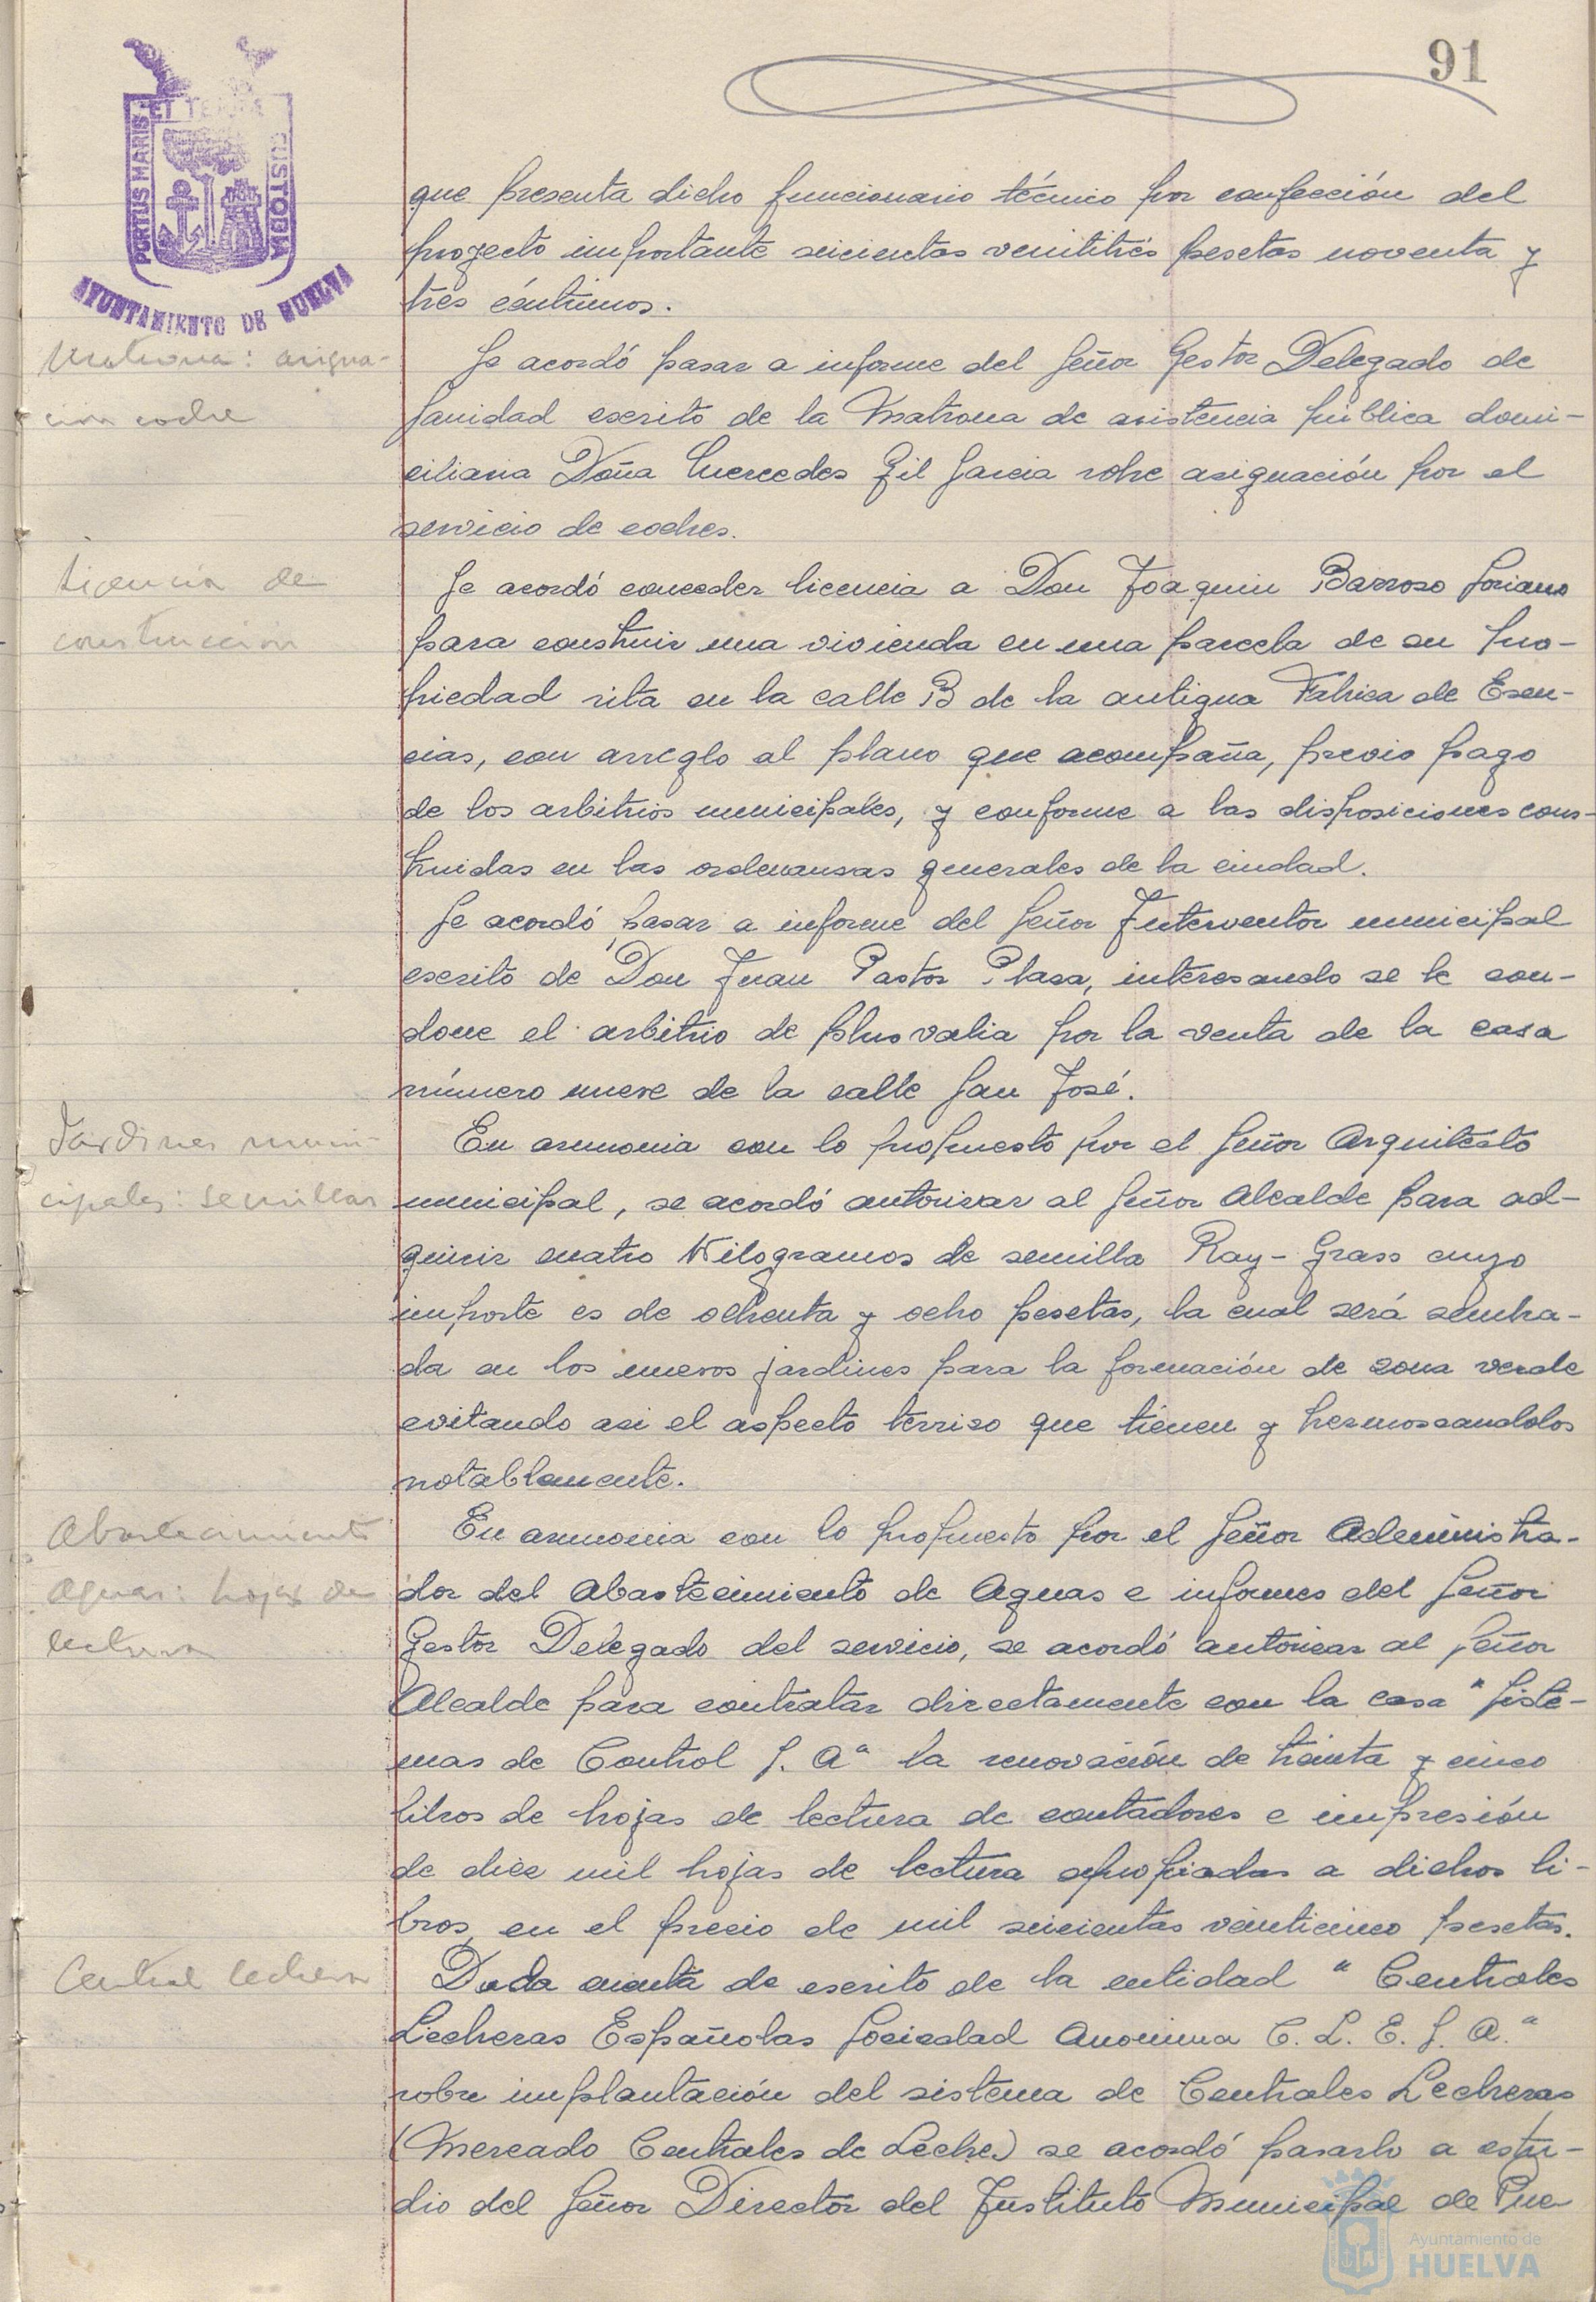 91
PORTUS MARIS ET TERRAE CUSTODIA
AYUNTAMIENTO DE HUELVA
que presenta dicho funcionario técnico por confección del
proyecto importante seicientas veintitrés pesetas noventa y
tres céntimos.
Matrona: asigna-
ción coche
Se acordó pasar a informe del Señor Gestor Delegado de
Sanidad escrito de la Matrona de asistencia pública domi-
ciliaria Doña Mercedes Gil Garcia sobre asignación por el
servicio de coches.
Licencia de
construcción
Se acordó conceder licencia a Don Joaquin Barroso Soriano
para construir una vivienda en una parcela de su pro-
piedad sita en la calle B de la antigua Fabrica de Esen-
cias, con arreglo al plano que acompaña, previo pago
de los arbitrios municipales, y conforme a las disposiciones cons-
truidas en las ordenansas generales de la ciudad.
Se acordó pasar a informe del Señor Interventor municipal
escrito de Don Juan Pastor Plasa, interesando se le con-
done el arbitrio de plus valia por la venta de la casa
número nueve de la calle San José.
Jardines muni-
cipales: semillas
En armonia con lo propuesto por el Señor Arquitecto
municipal, se acordó autorisar al Señor Alcalde para ad-
quirir cuatro Kilogramos de semilla Ray-Grass cuyo
importe es de ochenta y ocho pesetas, la cual será sembra-
da en los nuevos jardines para la formación de zona verde
evitando asi el aspecto terriso que tienen y hermoseandolos
notablemente.
Abastecimiento
Aguas: hojas de
lectura
En armonia con lo propuesto por el Señor Administra-
dor del Abastecimiento de Aguas e informes del Señor
Gestor Delegado del servicio, se acordó autorisar al Señor
Alcalde para contratar directamente con la casa "Siste-
mas de Control S. A" la renovación de treinta y cinco
libros de hojas de lectura de contadores e impresión
de diez mil hojas de lectura apropiadas a dichos li-
bros, en el precio de mil seicientas veinticinco pesetas.
Central lechera
Dada cuenta de escrito de la entidad "Centrales
Lecheras Españolas Sociedad Anonima C. L. E. S. A."
sobre implantación del sistema de Centrales Lecheras
(Mercado Centrales de Leche) se acordó pasarlo a estu-
dio del Señor Director del Instituto Municipal de Pue-
Ayuntamiento de
HUELVA